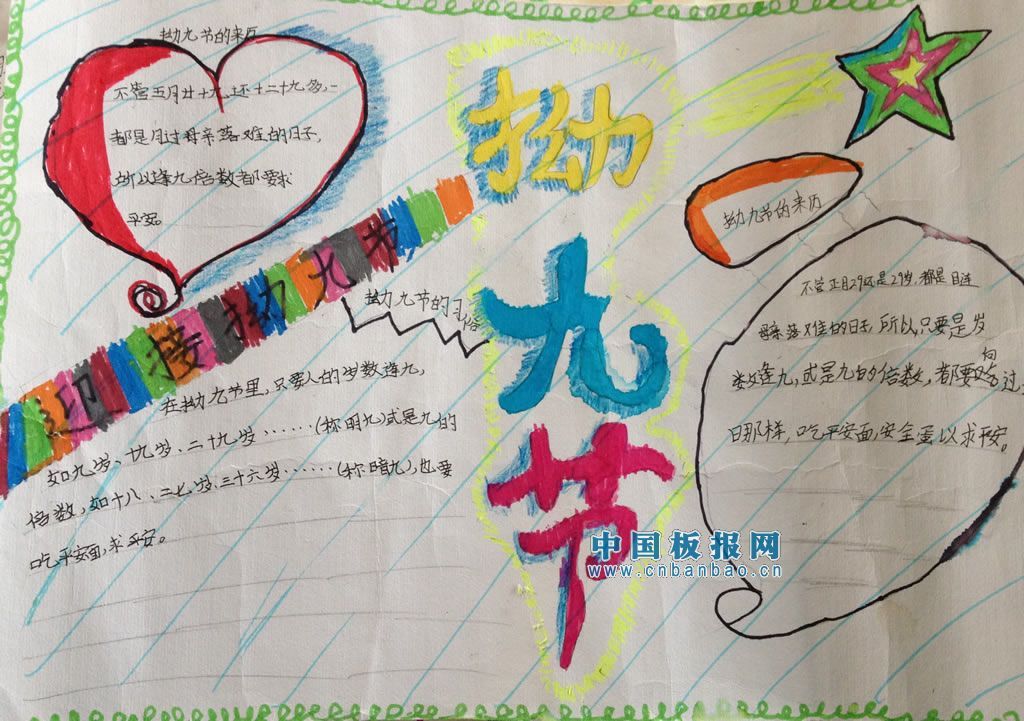 拗九节的来历
不管正月廿十九,还十二十九多,
都是月过母亲落难的日子,
所以逢九倍数都要求
平安
迎接拗九节
拗
九
节
拗九节的习俗
在拗九节里,只要人的岁数逢九,
如九岁、十九岁、二十九岁……(称明九)或是九的
倍数,如十八、二七岁、三十六岁……(称暗九),也要
吃平安面,求平安。
拗九节的来历
不管正月29还是29岁,都是目连
母亲落难的日子,所以,只要是岁
数逢九,或是九的倍数,都要向过
日那样,吃平安面,安全蛋以求平安。
中国板报网
www.cnbanbao.cn